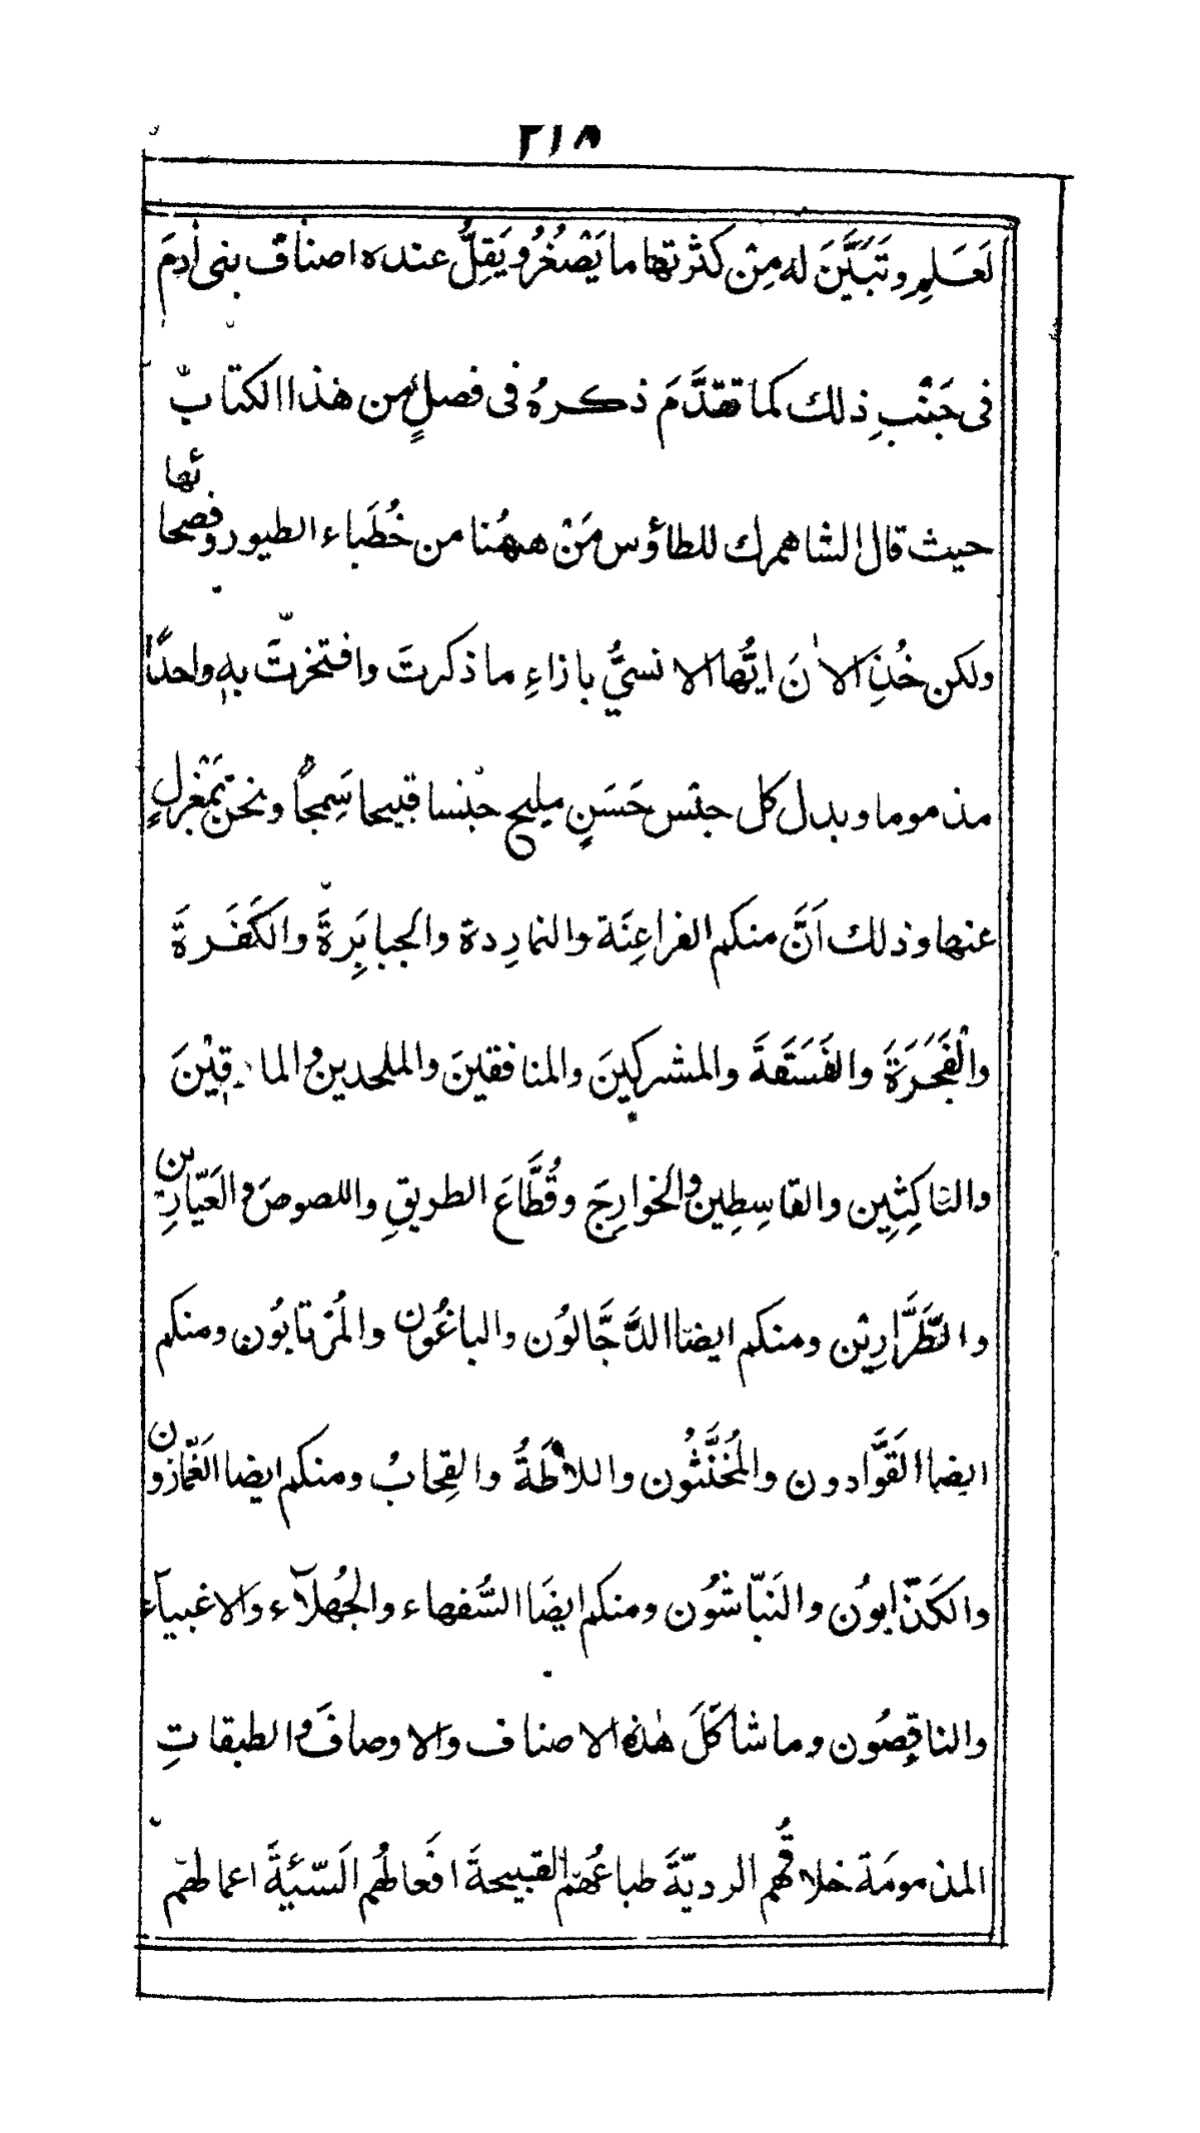 ٢١٨
لَعَلِمِ وتَبَيَّنَ له مِنْ كثرتها ما يَصْغُرُ و يَقِلُّ عنده اصنافُ بنى أدمَ
فى جَنْبِ ذلك كما تقدَّمَ ذكره فى فصلٍ من هذا الكتاب
حيث قال الشاهمرك للطاؤس مَنْ ههُنا من خُطَباء الطيور وفصحائها
ولكن خُذِ الاٰنَ ايُّها الانسيُّ بازاءِ ما ذكرتَ وافتخرتَ به واحدًا
مذموما وبدل كل جنس حَسَنٍ مليح جنسا قبيحا سَمِجًا ونحن بمَعْزلٍ
عنها وذلك اَنَّ منكم الفراعِنَة والنمارِدة والجبابِرةَ والكَفَرةَ
والْفَجَرَةَ والفَسَقَةَ والمشركينَ والمنافقينَ والملحدين والمارقِيْنَ
والناكِثِين والقاسِطِين والخوارِجَ وقُطَّاعَ الطريقِ واللصوصَ والعَيّارِين
والطَّرَّارِيْن ومنكم ايضا الدَّجَّالوُن والباغُون والمُرْتابوُن ومنكم
ايضا القَوَّادون والمُخَنَّثُون واللاطَةُ والقِحابُ ومنكم ايضا الغَمّازون
والكَذّابوُن والنَبّاشوُن ومنكم ايضَا السُّفهاء والجُهلآء والاغبيآء
والناقِصُون وما شاكَلَ هٰذه الاصناف والاوصافَ والطبقاتِ
المذمومَة خلاقُهم الرديّةَ طباعُهم القبيحةَ افعالهُم السّيئةَ اعمالهم